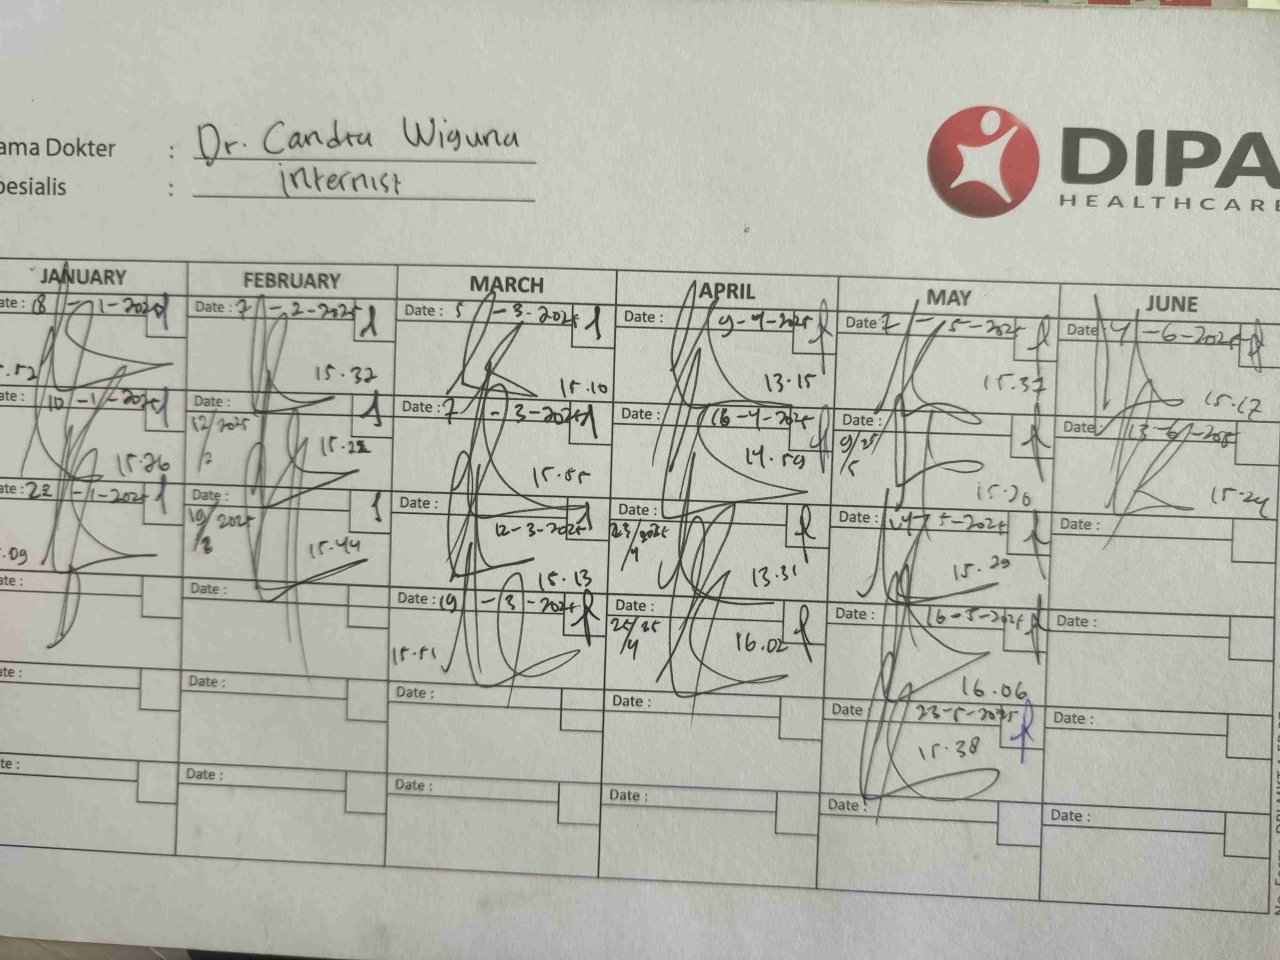 ama Dokter : Dr. Candra Wiguna
pesialis : internist
DIPA
HEALTHCARE
JANUARY FEBRUARY MARCH APRIL MAY JUNE
ate : Date : 7 -2-2025 Date : 5 -3-2025 Date : 9-4-2025 Date : 7 - 5-2025 Date : 4 -6-2025
15.32 15.10 13.15 15.37 15.17
ate : 10 -1-2025 Date : 12/2 2025 Date : 7 -3-2025 Date : 16-4-2025 Date : 9/5 25 Date : 13-6-2025
15.26 15.22 15.55 14.59 15.26 15.24
ate : 22 -1-2025 Date : 19/2 2025 12-3-2025 Date : 23/4 2025 Date : 14 5-2025 Date :
.09 15.44 15.13 13.31 15.29
ate : Date : Date : 19 -3-2025 Date : 25/4 25 Date : 16-5-2025 Date :
15.51 16.02 16.06
te : Date : Date : Date : Date 23-5-2025 Date :
15.38
te : Date : Date : Date : Date : Date :